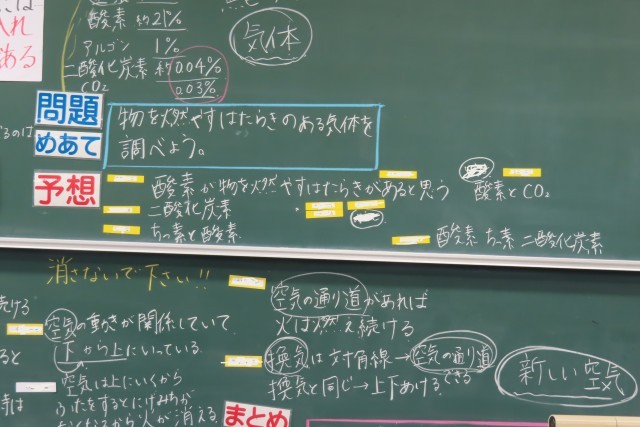 には
酸素 約21%
入れ
ある
アルゴン 1%
気体
二酸化炭素 約0.04%
CO₂ 0.03%
問題
めあて
物を燃やすはたらきのある気体を
調べよう。
予想
酸素が物を燃やすはたらきがあると思う
酸素とCO₂
二酸化炭素
ちっ素と酸素
酸素 ちっ素 二酸化炭素
消さないで下さい!!
空気の通り道があれば
火は燃え続ける
続ける
空気の動きが関係していて
下から上にいっている
ると
換気は対角線→空気の通り道
できる
換気と同じ→上下あける
新しい空気
空気は上にいくから
ふたをするとにげみちが
時は
なくなるから火が消える
まとめ